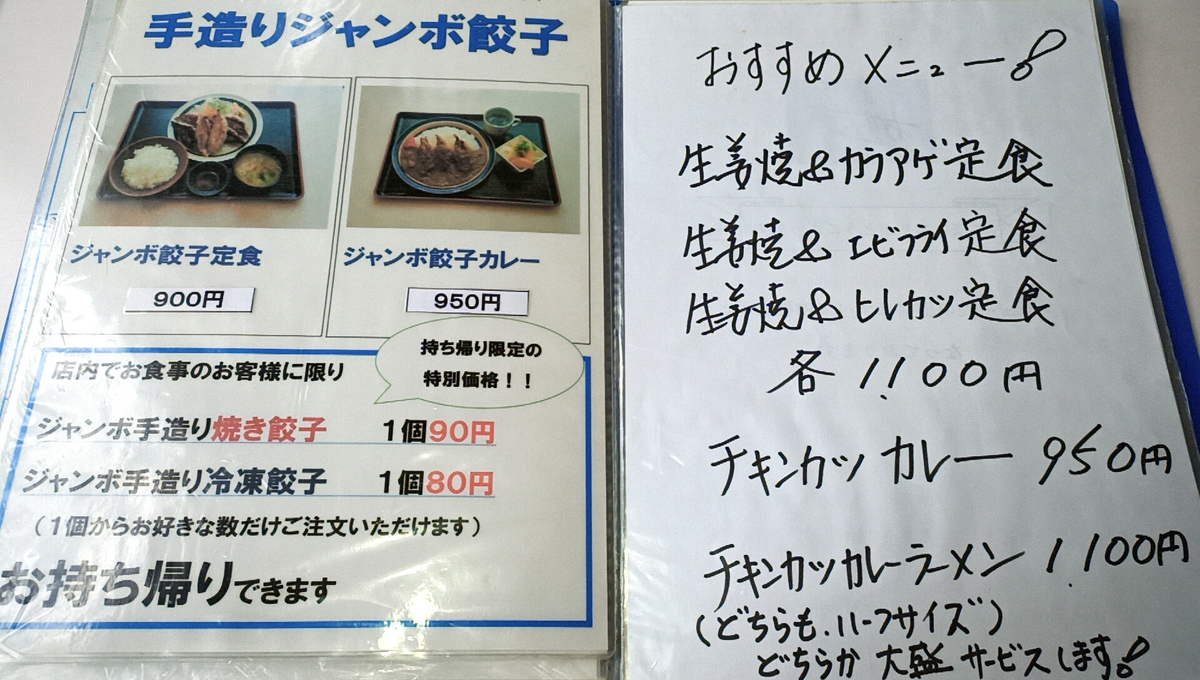 手造りジャンボ餃子
ジャンボ餃子定食
900円
ジャンボ餃子カレー
950円
持ち帰り限定の
特別価格！！
店内でお食事のお客様に限り
ジャンボ手造り焼き餃子 1個90円
ジャンボ手造り冷凍餃子 1個80円
（1個からお好きな数だけご注文いただけます）
お持ち帰りできます
おすすめメニュー!
生姜焼&カラアゲ定食
生姜焼&エビフライ定食
生姜焼&ヒレカツ定食
各 1,100円
チキンカツ カレー 950円
チキンカツカレーラーメン 1,100円
(どちらも、ハーフサイズ)
どちらか 大盛 サービスします!